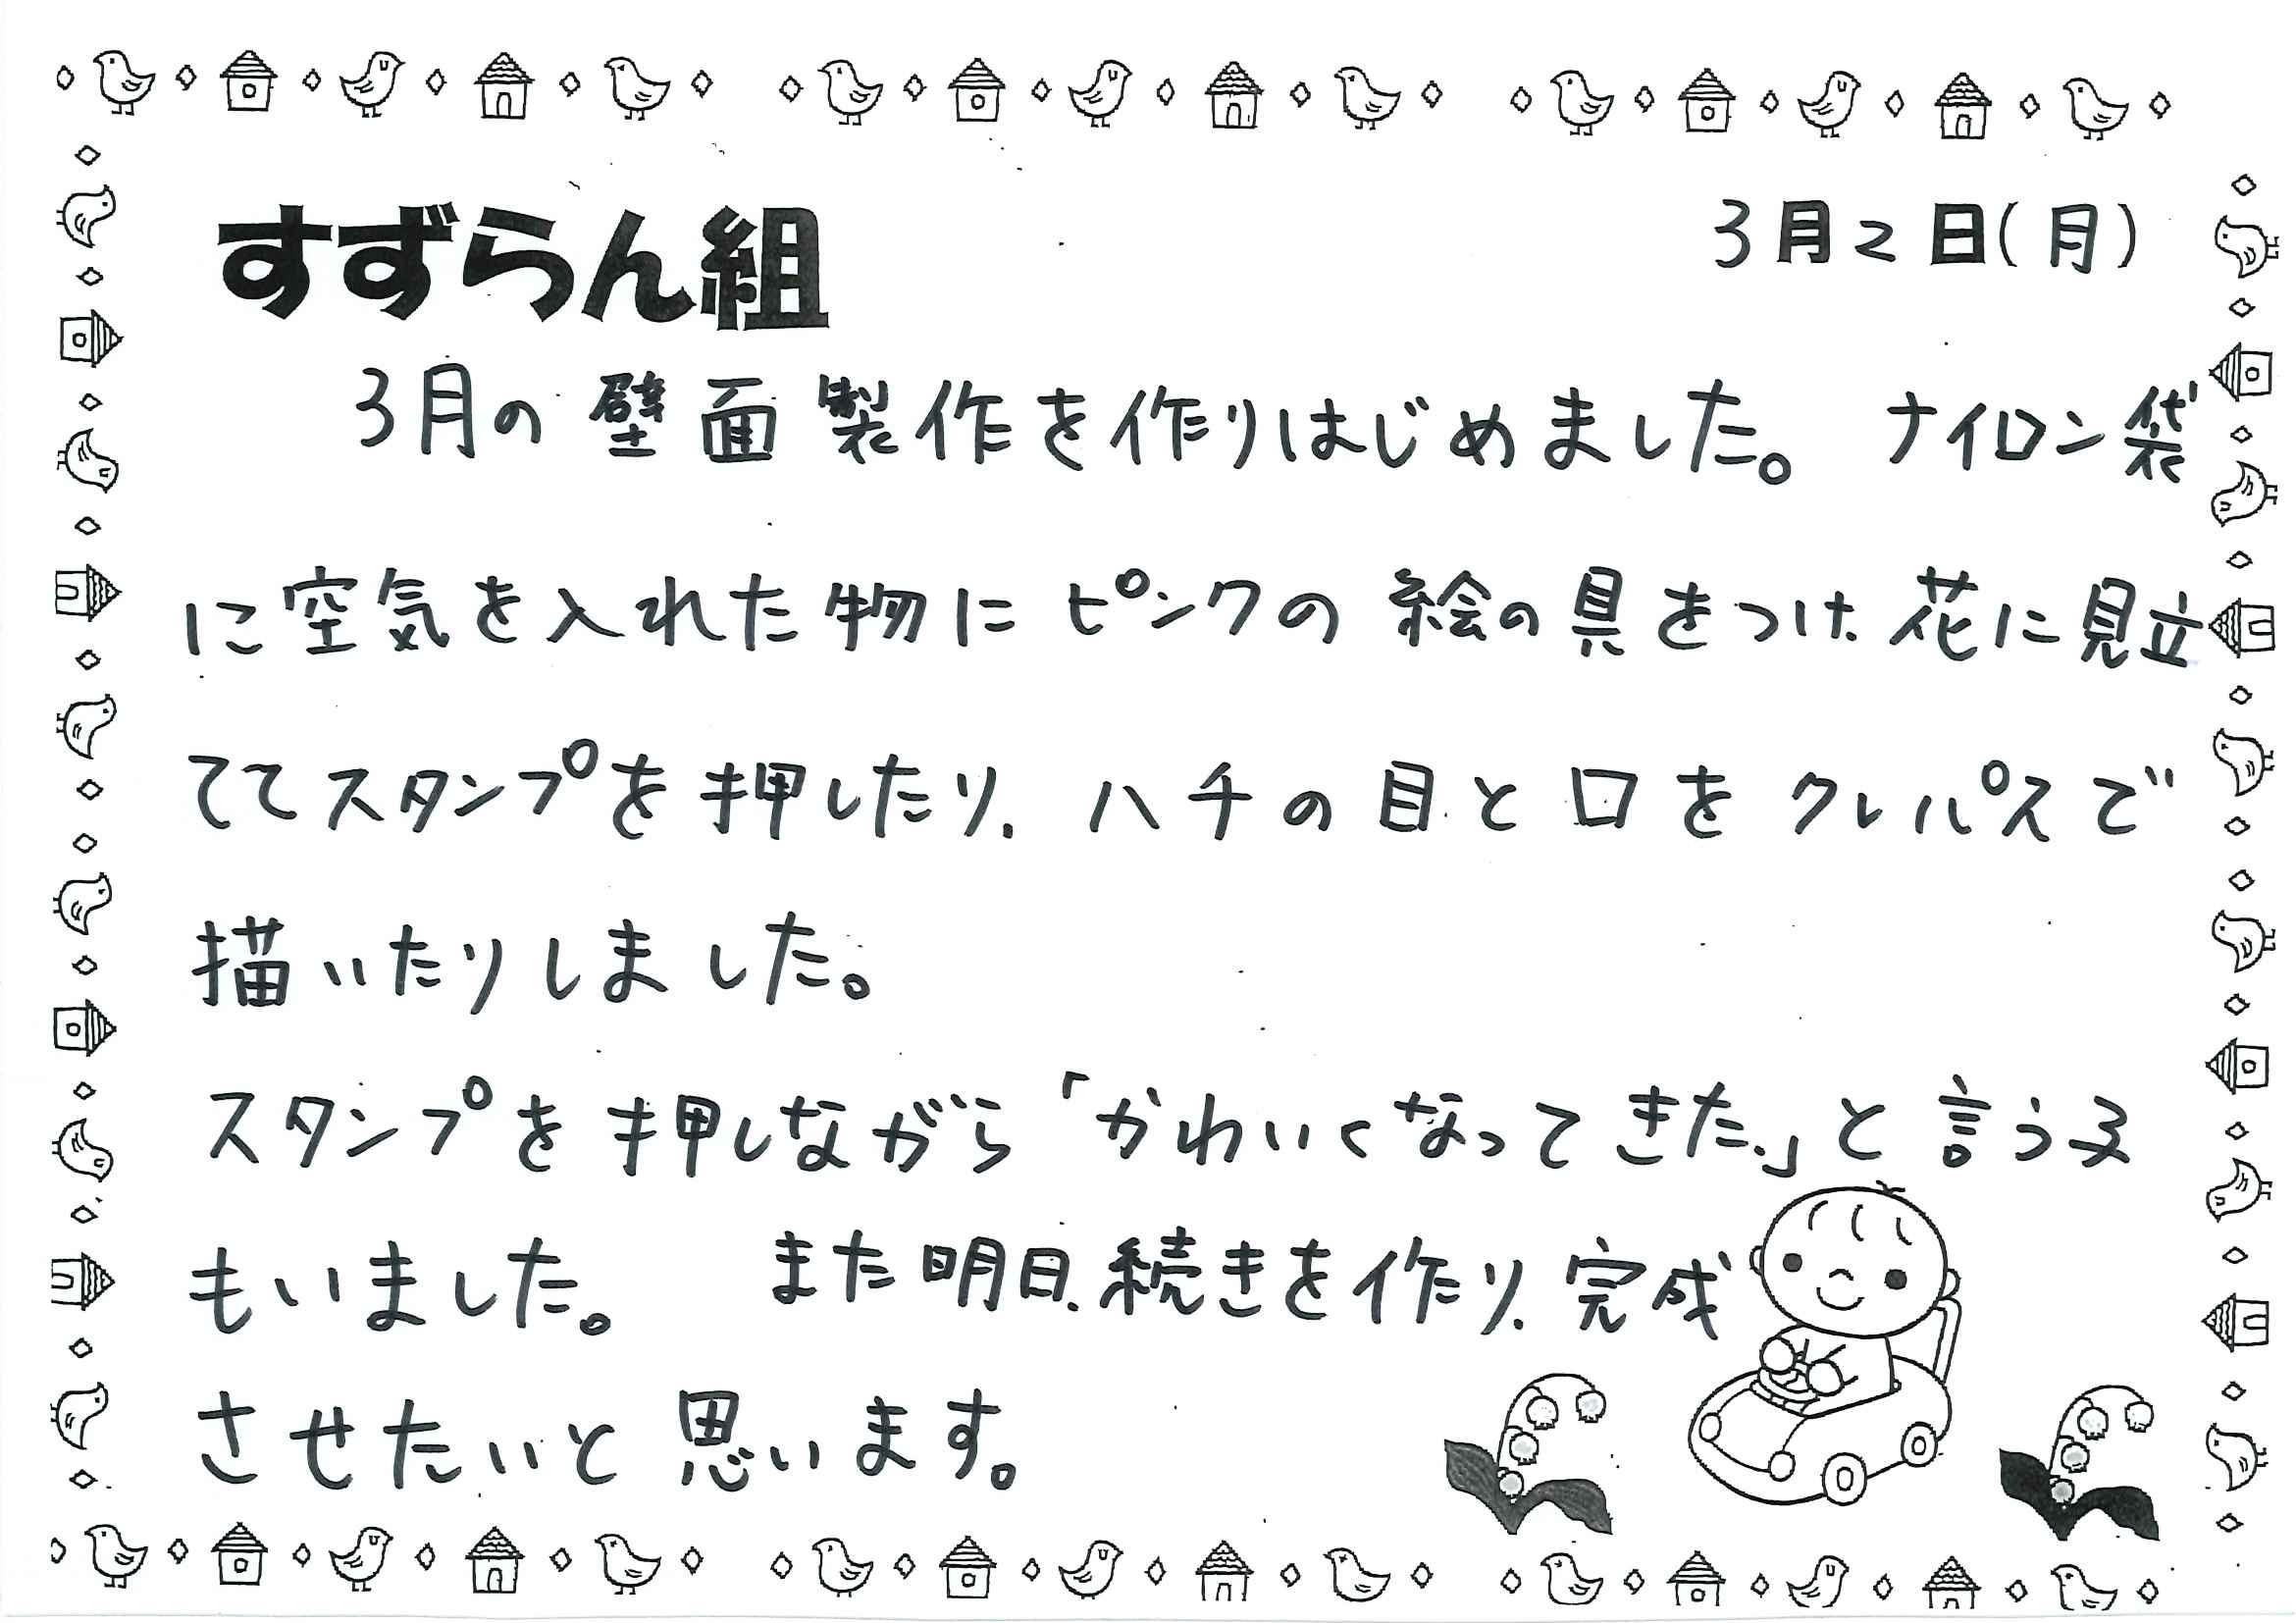 すずらん組
3月2日(月)
3月の壁面製作を作りはじめました。 ナイロン袋
に空気を入れた物にピンクの絵の具をつけ、花に見立
ててスタンプを押したり、ハチの目と口をクレパスで
描いたりしました。
スタンプを押しながら「かわいくなってきた。」と言う子
もいました。 また明日、続きを作り、完成
させたいと思います。